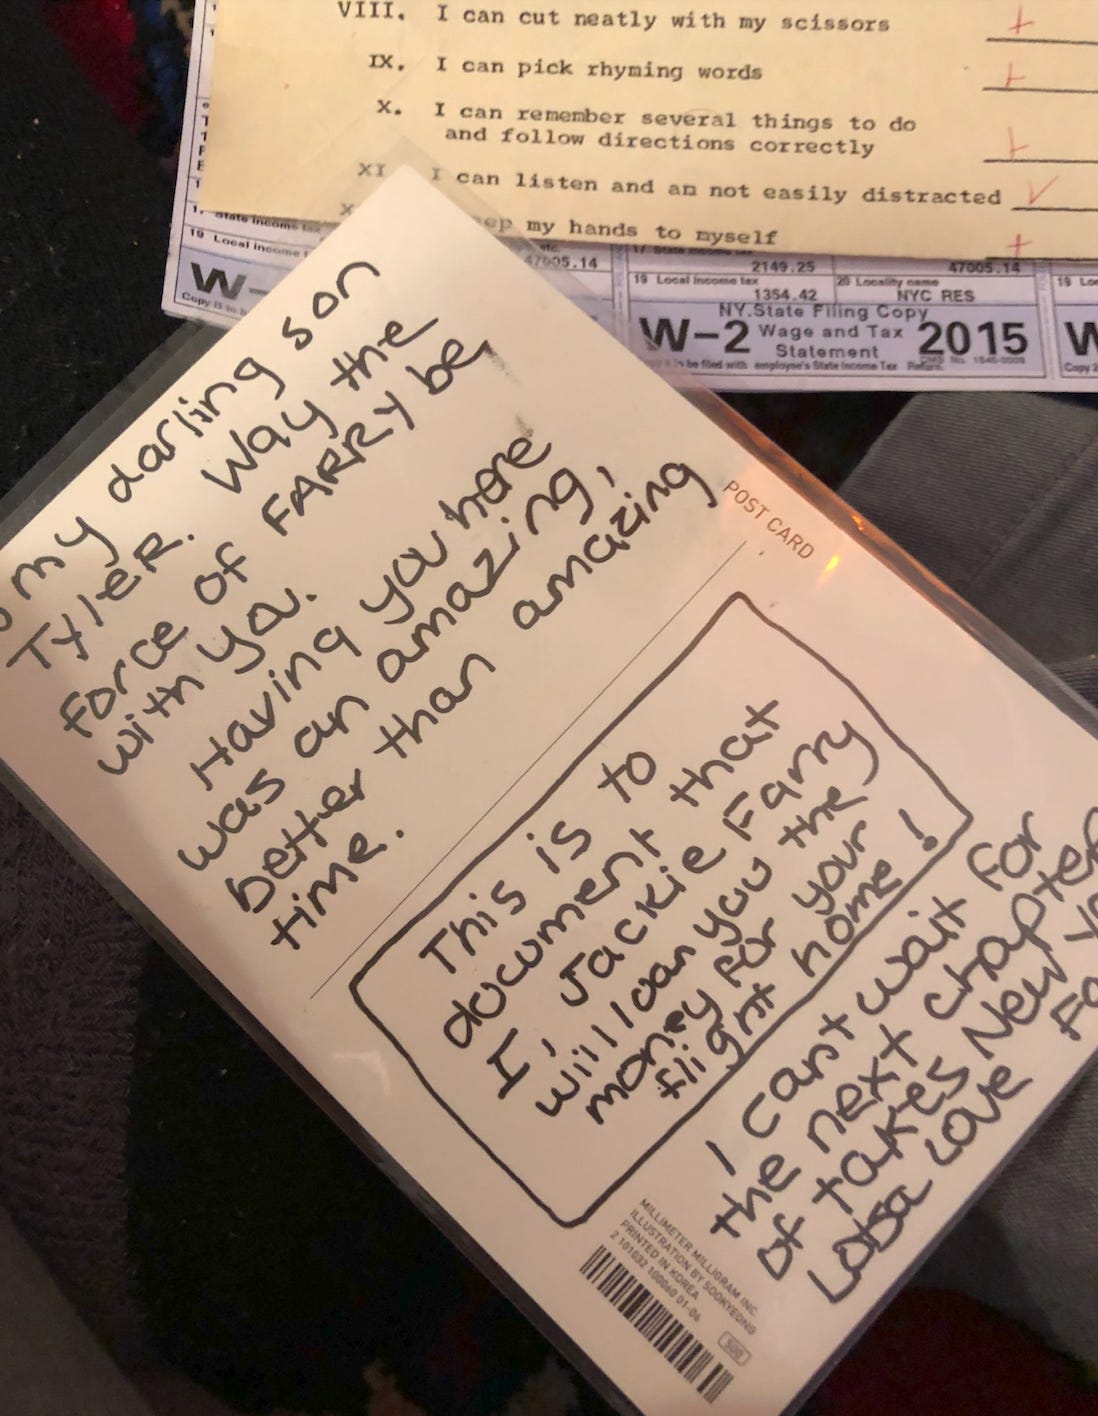 VIII. I can cut neatly with my scissors +
IX. I can pick rhyming words +
X. I can remember several things to do
and follow directions correctly +
XI I can listen and am not easily distracted ✓
my hands to myself +
State income tax
19 Local income
W-
etc.
47005.14
2149.25
47005.14
19 Local income tax
1354.42
20 Locality name
NYC RES
NY.State Filing Copy
W-2 Wage and Tax
Statement 2015
employee's State Income Tax Return.
my darling son
TYLER. Way the
force of FARRY be
with you.
Having you here
was an amazing,
better than amazing
time.
POST CARD
This is to
document that
I, Jackie Farry
will loan you the
money for your
flight home!
I cant wait for
the next chapter
of takes New
Lotsa Love
MILLIMETER MILLIGRAM INC.
ILLUSTRATION BY SOOKYEONG
PRINTED IN KOREA
2 101032 100060 01-06
500